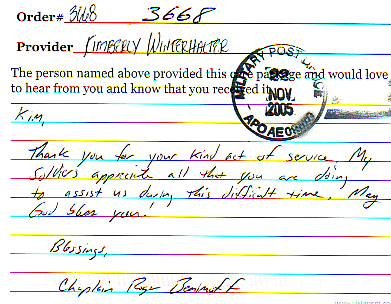 Order# 3668 3668
Provider Kimberly Winterhalter
The person named above provided this care package and would love
to hear from you and know that you received it.
MILITARY POST SERVICE
22
NOV.
2005
APO AE
Kim,
Thank you for your kind act of service. My
Soldiers appreciate all that you are doing
to assist us during this difficult time. May
God bless you.
Blessings,
Chaplain Roger